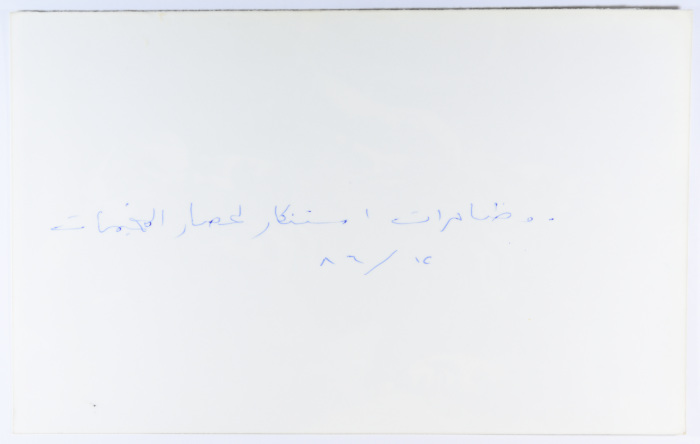 مظاهرات استنكار لحصار المخيمات
٨٦/١٢